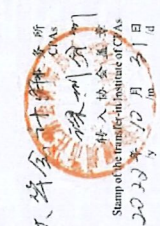 事务所
CPAs
深圳分所
转入协会盖章
Stamp of the transfer-in Institute of CPAs
2022年10月31日
/y /m /d